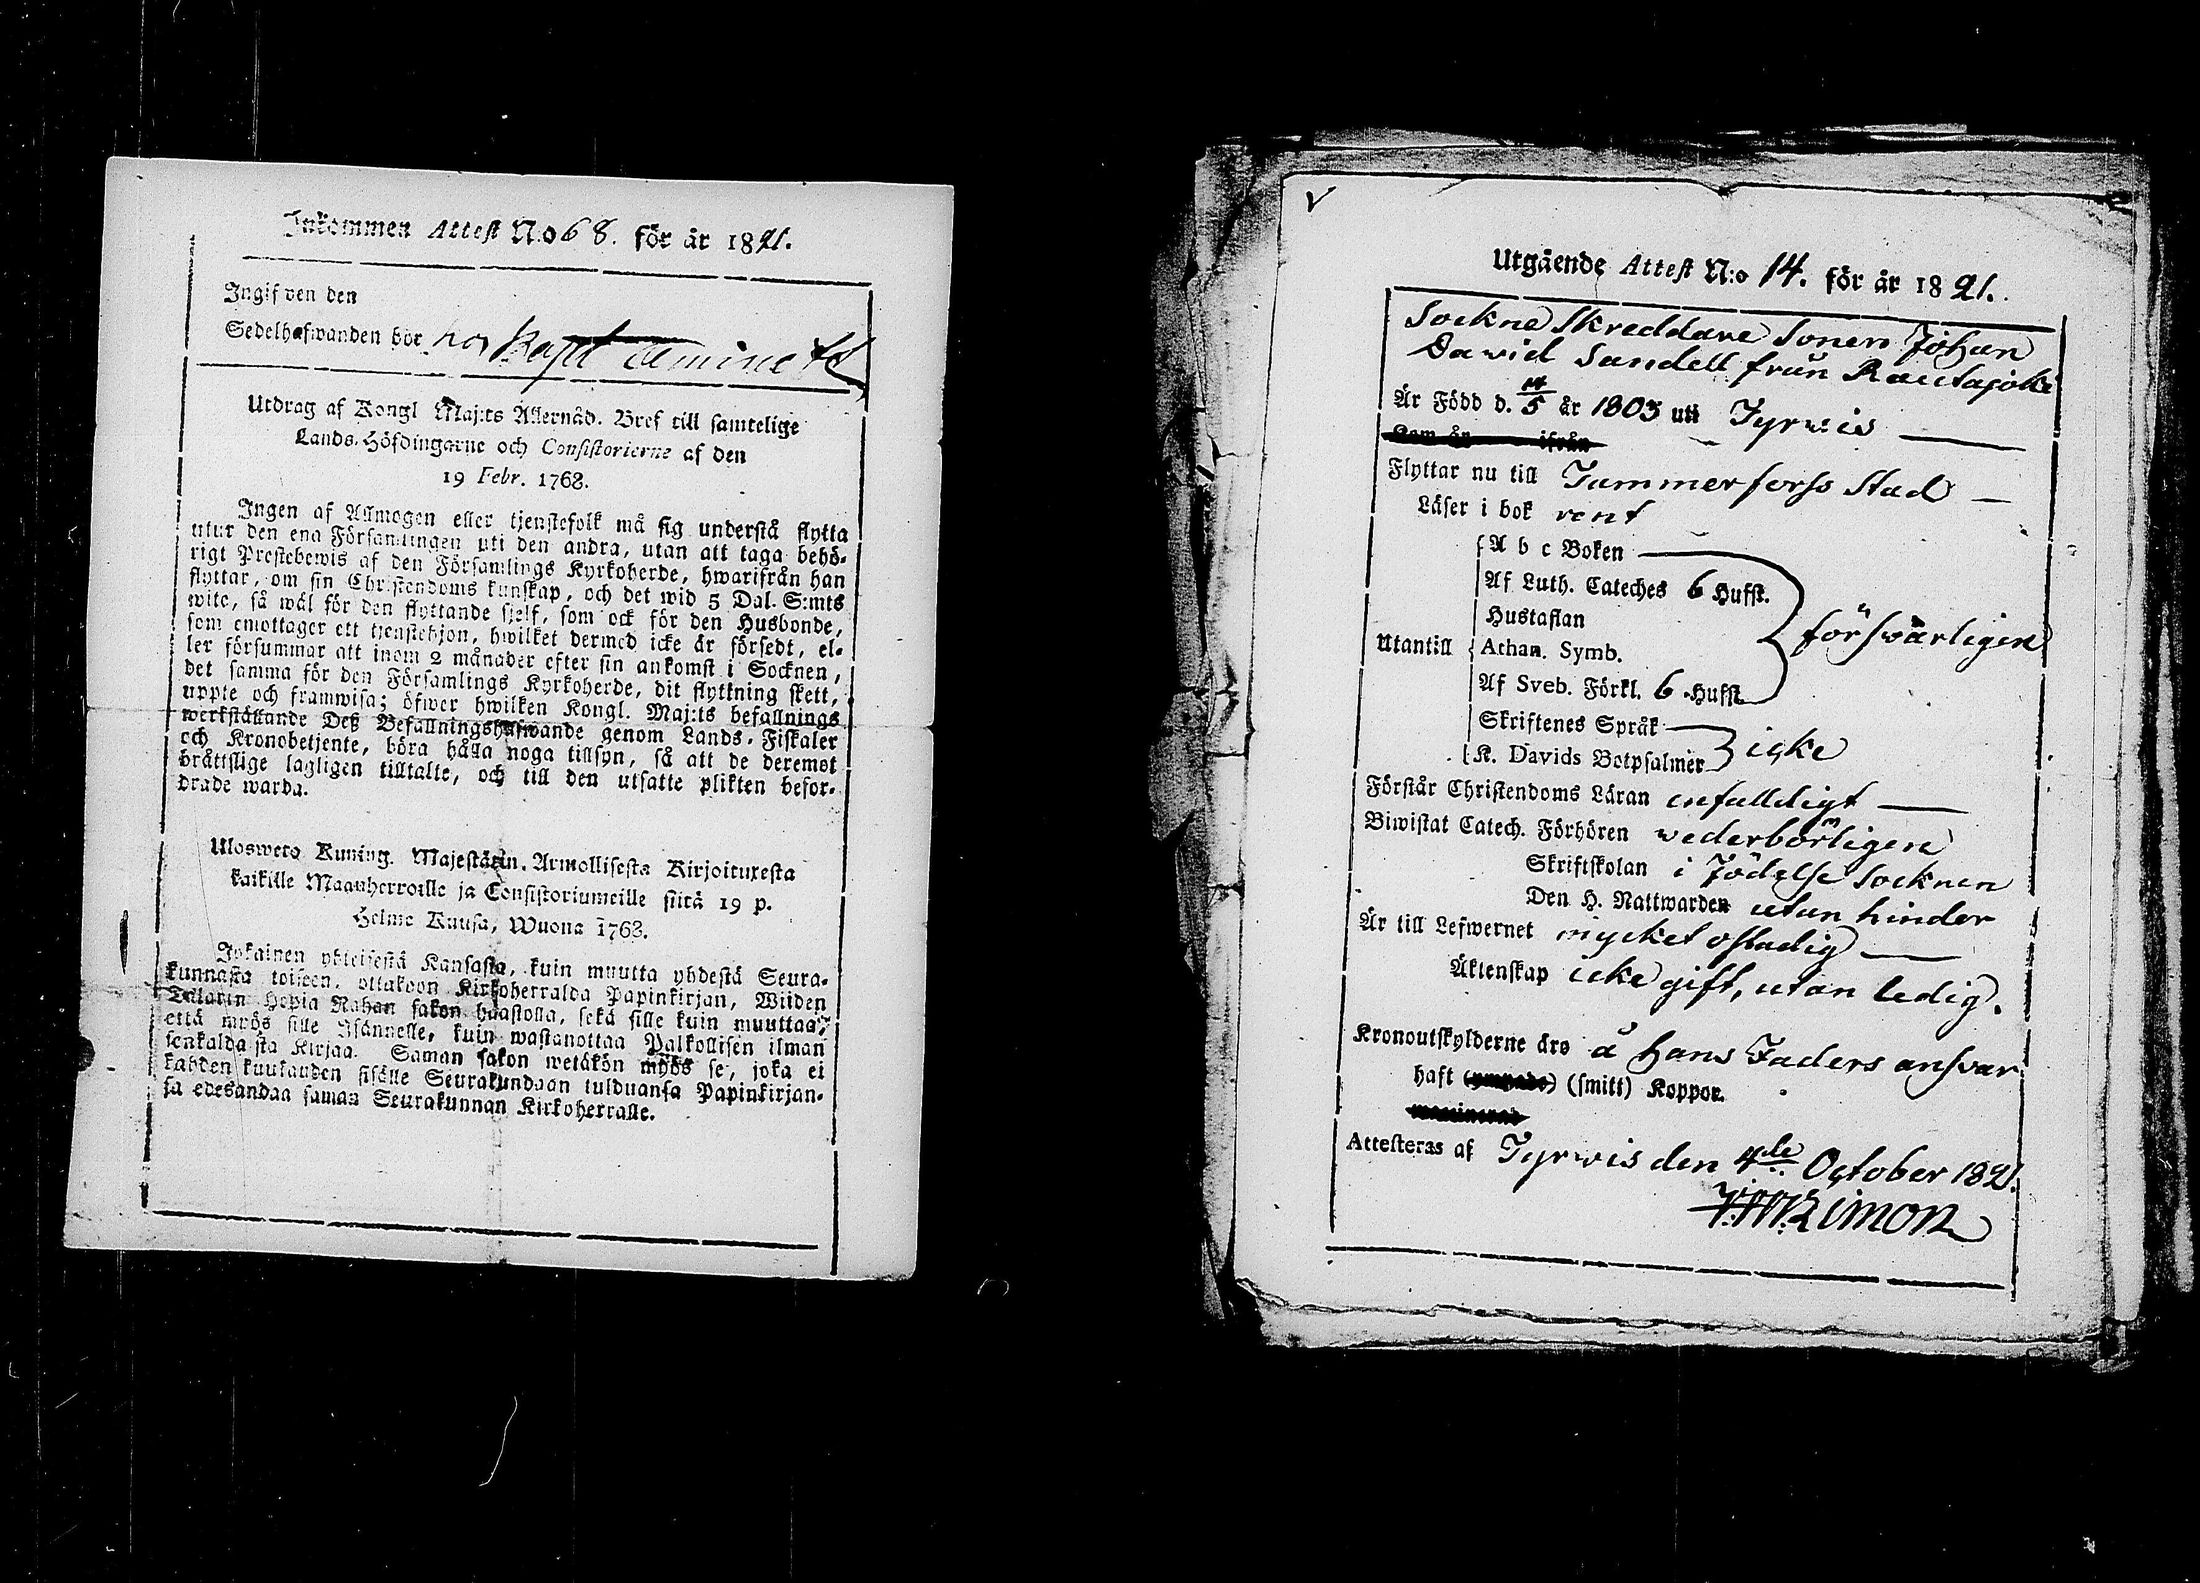 Inkommen Attest N:o 68. för år 1821.
Ingifven den
Sedelhafwanden bor hos
Utdrag af Kongl Maj:ts Allernåd. Bref till samtelige
Lands-Höfdingarne och Consistorierne af den
19 Febr. 1768.
Ingen af Allmogen eller tjenstefolk må sig understå flytta
utur den ena Församlingen uti den andra, utan att taga behö-
rigt Prestebewis af den Församlings Kyrkoherde, hwarifrån han
flyttar, om sin Christendoms kunskap, och det wid 5 Dal. S:mts
wite, så wäl för den flyttande sjelf, som ock för den Husbonde,
som emottager ett tjenstehjon, hwilket dermed icke är försedt, el-
ler försummar att inom 2 månader efter sin ankomst i Socknen,
det samma för den Församlings Kyrkoherde, dit flyttning skett,
uppte och framwisa; öfwer hwilken Kongl. Maj:ts befallnings
werkställande Deß Befallningshafwande genom Lands-Fiskaler
och Kronobetjente, böra hålla noga tillsyn, så att de deremot
bråttslige lagligen tilltalte, och till den utsatte plikten befor-
drade warda.
Ulosweto Kuning. Majestätin. Armollisesta Kirjoituxesta
kaikille Maanherroille ja Consistoriumeille siitä 19 p.
Helme Kuusa, Wuona 1768.
Jokainen yhteisestä Kansasta, kuin muutta yhdestä Seura-
kunnasta toiseen, ottakoon Kirkoherralda Papinkirjan, Wiiden
Talarin Hopia Rahan sakon haastolla, sekä sille kuin muuttaa,
että myös sille Isännelle, kuin wastanottaa Palkollisen ilman
senkaldaista Kirjaa. Saman sakon wetäkön myös se, joka ei
kahden kuukauden sisälle Seurakundaan tulduansa Papinkirjan-
sa edesandaa saman Seurakunnan Kirkoherralle.
Utgående Attest N:o 14. för år 1821.
Sockne Skreddare Sonen Johan
David Sandell från Rautajoki
Är Född d. 14/5 år 1803 uti Tyrwis
Kom år ifrån
Flyttar nu till Tammerforss Stad
Läser i bok rent
A b c Boken
Af Luth. Cateches 6 Hufst.
Hustaflan
Utantill Athan. Symb. försvarligen
Af Sveb. Förkl. 6 Hufst
Skriftenes Språk
K. Davids Botpsalmer icke
Förstår Christendoms Läran enfalldigt
Biwistat Catech. Förhören wederbörligen
Skriftskolan i Födelse Socknen
Den H. Nattwarden utan hinder
Är till Lefwernet mycket ostadig
Äktenskap icke gift, utan ledig.
Kronoutskylderne äro å hans Faders ansvar
haft (ympade) (smitt) Koppor.
vaccinerad
Attesteras af Tyrwis den 4de October 1821.